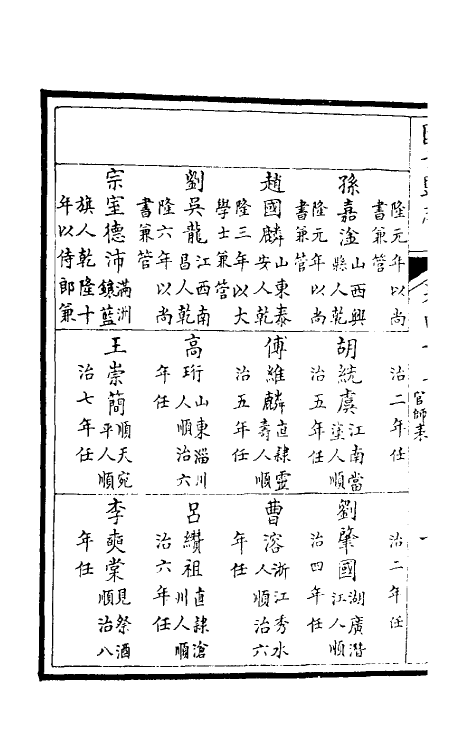 隆元年以尚
書兼管
孫嘉淦山西興
縣人乾
隆元年以尚
書兼管
趙國麟山東泰
安人乾
隆三年以大
學士兼管
劉吳龍江西南
昌人乾
隆六年以尚
書兼管
宗室德沛滿洲
鑲藍
旗人乾隆十
年以侍郎兼
治二年任
胡統虞江南當
塗人順
治五年任
傅維麟直隸靈
壽人順
治五年任
高珩山東淄川
人順治六
年任
王崇簡順天宛
平人順
治七年任
治二年任
劉肇國湖廣潛
江人順
治四年任
曹溶浙江秀水
人順治六
年任
呂纘祖直隸滄
州人順
治六年任
李奭棠見祭酒
順治八
年任
官師表
一